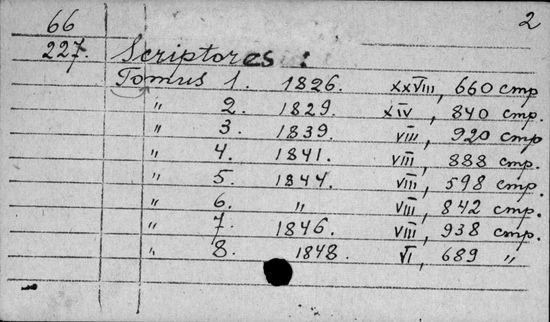 66 2
227. Scriptores:
Tomus 1. 1826. XXVIII, 660 стр
" 2. 1829. XIV, 840 стр.
" 3. 1839. VIII, 920 стр
" 4. 1841. VIII, 888 стр.
" 5. 1844. VIII, 598 стр.
" 6. " VIII, 842 стр.
" 7. 1846. VIII, 938 стр.
" 8. 1848. VI, 689 "